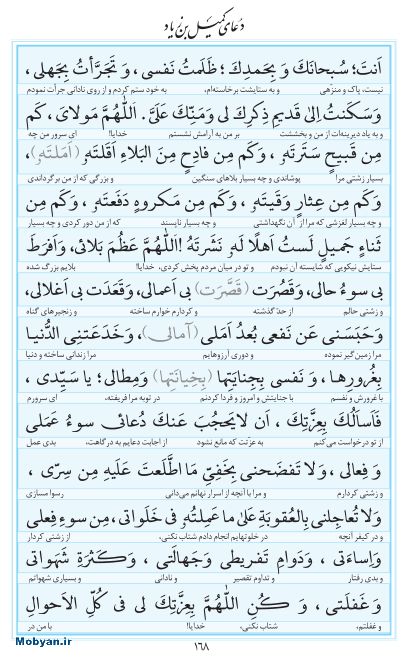 دعای کمیل بن زیاد
اَنتَ؛ سُبحانَكَ وَ بِحَمدِكَ؛ ظَلَمتُ نَفسی، وَ تَجَرَّأتُ بِجَهلی،
نیست، پاک و منزّهی و به ستایشت برخاسته‌ام، به خود ستم کردم و از روی نادانی جرأت نمودم
وَ سَكَنتُ اِلیٰ قَدیمِ ذِكرِكَ لی وَ مَنِّكَ عَلَیَّ. اَللّٰهُمَّ مَولایَ، كَم
و به یاد دیرینه‌ات از من و بخششت بر من به آرامش نشستم خدایا! ای سرور من چه
مِن قَبیحٍ سَتَرتَهُ، وَ كَم مِن فادِحٍ مِنَ البَلاءِ اَقَلتَهُ (اَمَلتَهُ)،
بسیار زشتی مرا پوشاندی و چه بسیار بلاهای سنگین و بزرگی که از من برگرداندی
وَ كَم مِن عِثارٍ وَقَیتَهُ، وَ كَم مِن مَكروهٍ دَفَعتَهُ، وَ كَم مِن
و چه بسیار لغزشی که مرا از آن نگهداشتی و چه بسیار ناپسند که از من دور کردی و چه بسیار
ثَناءٍ جَمیلٍ لَستُ اَهلًا لَهُ نَشَرتَهُ! اَللّٰهُمَّ عَظُمَ بَلائی، وَ اَفرَطَ
ستایش نیکویی که شایسته آن نبودم و تو در میان مردم پخش کردی، خدایا! بلایم بزرگ شده
بی سوءُ حالی، وَ قَصُرَت (قَصَّرَت) بی اَعمالی، وَ قَعَدَت بی اَغلالی،
و زشتی حالم از حدّ گذشته و کردارم خوارم ساخته و زنجیرهای گناه
وَ حَبَسَنی عَن نَفعی بُعدُ اَمَلی (آمالی)، وَ خَدَعَتنِی الدُّنیا
مرا زمین‌گیر نموده و دوری آرزوهایم مرا زندانی ساخته و دنیا
بِغُرورِها، وَ نَفسی بِجِنایَتِها (بِخِیانَتِها) وَ مِطالی؛ یا سَیِّدی،
با غرورش و نفسم با جنایتش و امروز و فردا کردنم در توبه مرا فریفته، ای سرورم
فَاَسأَلُكَ بِعِزَّتِكَ، اَن لا یَحجُبَ عَنكَ دُعائی سوءُ عَمَلی
از تو درخواست می‌کنم به عزّتت که مانع نشود از اجابت دعایم به درگاهت، بدی عمل
وَ فِعالی، وَ لا تَفضَحنی بِخَفِیِّ مَا اطَّلَعتَ عَلَیهِ مِن سِرّی،
و زشتی کردارم و مرا با آنچه از اسرار نهانم می‌دانی رسوا مسازی
وَ لا تُعاجِلنی بِالعُقوبَةِ عَلیٰ ما عَمِلتُهُ فی خَلَواتی، مِن سوءِ فِعلی
و در کیفر آنچه در خلوتهایم انجام دادم شتاب نکنی، از زشتی کردار
وَ اِساءَتی، وَ دَوامِ تَفریطی وَ جَهالَتی، وَ كَثرَةِ شَهَواتی
و بدی رفتار و تداوم تقصیر و نادانی و بسیاری شهواتم
وَ غَفلَتی، وَ كُنِ اللّٰهُمَّ بِعِزَّتِكَ لی فی كُلِّ الاَحوالِ
و غفلتم، شتاب نکنی، خدایا! با من در
Mobyan.ir
۱۶۸